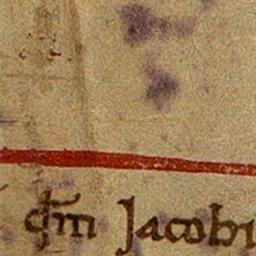 qm̄ Jacobi